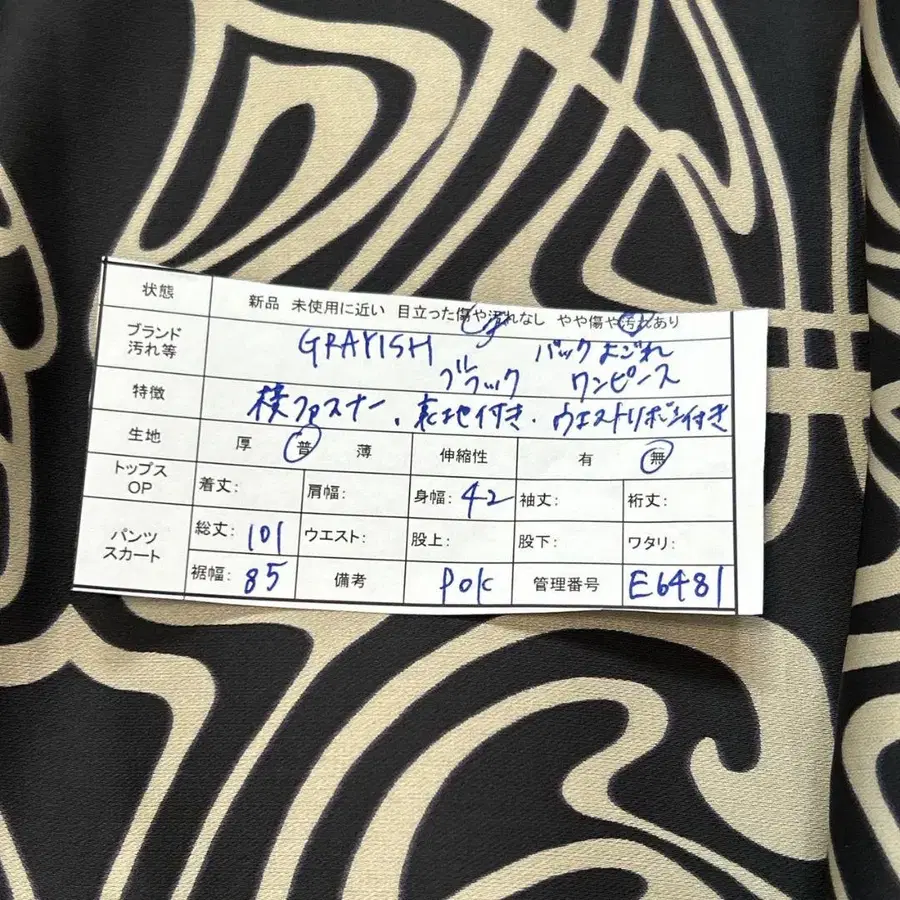 状態 新品 未使用に近い 目立った傷や汚れなし やや傷や汚れあり
ブランド 汚れ等 GRAYISH バックよごれ
ブラック ワンピース
特徴 横ファスナー、裏地付き・ウエストリボン付き
生地 厚 普 薄 伸縮性 有 無
トップス OP 着丈: 肩幅: 身幅: 42 袖丈: 裄丈:
パンツ スカート 総丈: 101 ウエスト: 股上: 股下: ワタリ:
裾幅: 85 備考 pok 管理番号 E6481